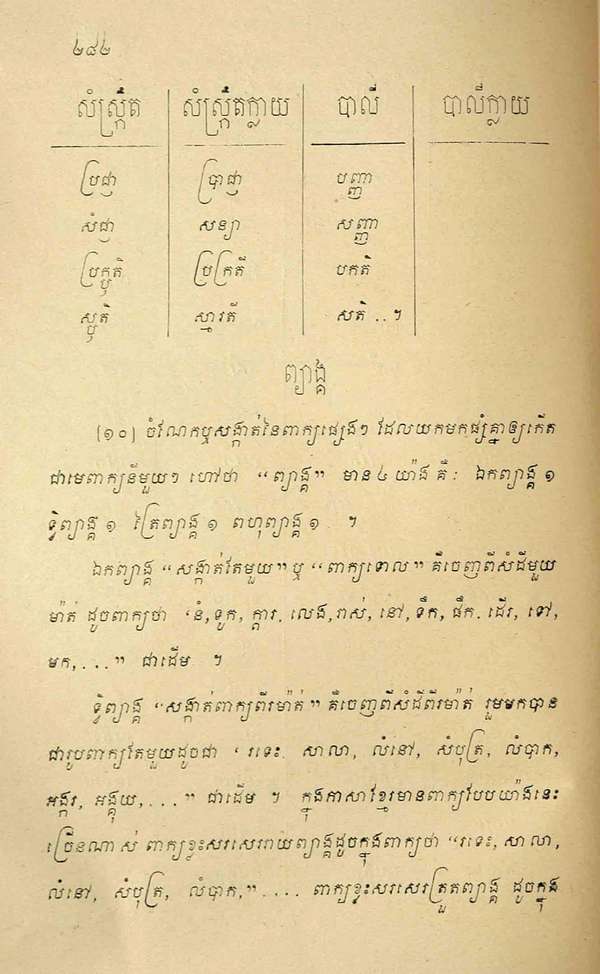 ២៨២
សំស្ក្រឹត សំស្ក្រឹតក្លាយ បាលី បាលីក្លាយ
ប្រជ្ញា ប្រាជ្ញា បញ្ញា
សំជ្ញា សន្យា សញ្ញា
ប្រក្ឫតិ ប្រក្រតី បកតិ
ស្ម្ឫតិ ស្មារតី សតិ ..។
ព្យាង្គ
(១០) ចំណែកឬសង្កាត់នៃពាក្យផ្សេងៗ ដែលយកមកផ្សំគ្នាឲ្យកើត
ជាមេពាក្យនីមួយៗ ហៅថា “ព្យាង្គ” មាន ៤ យ៉ាង គឺ: ឯកព្យាង្គ ១
ទ្វិព្យាង្គ ១ ត្រៃព្យាង្គ ១ ពហុព្យាង្គ ១ ។
ឯកព្យាង្គ “សង្កាត់តែមួយ” ឬ “ពាក្យទោល” គឺចេញពីសំដីមួយ
ម៉ាត់ ដូចពាក្យថា ‘នំ, ទូក, ក្តារ, លេង, រាស់, នៅ, ទឹក, ផឹក, ដើរ, ទៅ,
មក,...” ជាដើម ។
ទ្វិព្យាង្គ “សង្កាត់ពាក្យពីរម៉ាត់” គឺចេញពីសំដីពីរម៉ាត់ រួមមកបាន
ជារូបពាក្យតែមួយដូចជា ‘ រទេះ, សាលា, លំនៅ, សំបុត្រ, លំបាក,
អង្ករ, អង្គុយ,...” ជាដើម ។ ក្នុងភាសាខ្មែរមានពាក្យបែបយ៉ាងនេះ
ច្រើនណាស់ ពាក្យខ្លះសរសេររាយព្យាង្គដូចក្នុងពាក្យថា “រទេះ, សាលា,
លំនៅ, សំបុត្រ, លំបាក,”.... ពាក្យខ្លះសរសេរត្រួតព្យាង្គ ដូចក្នុង